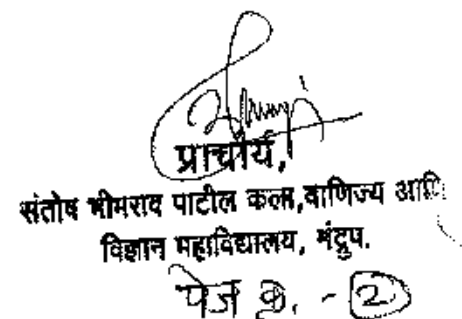 प्राचार्य,
संतोष भीमराव पाटील कला,वाणिज्य आणि
विज्ञान महाविद्यालय, मंद्रुप.
पेज क्र. - 2